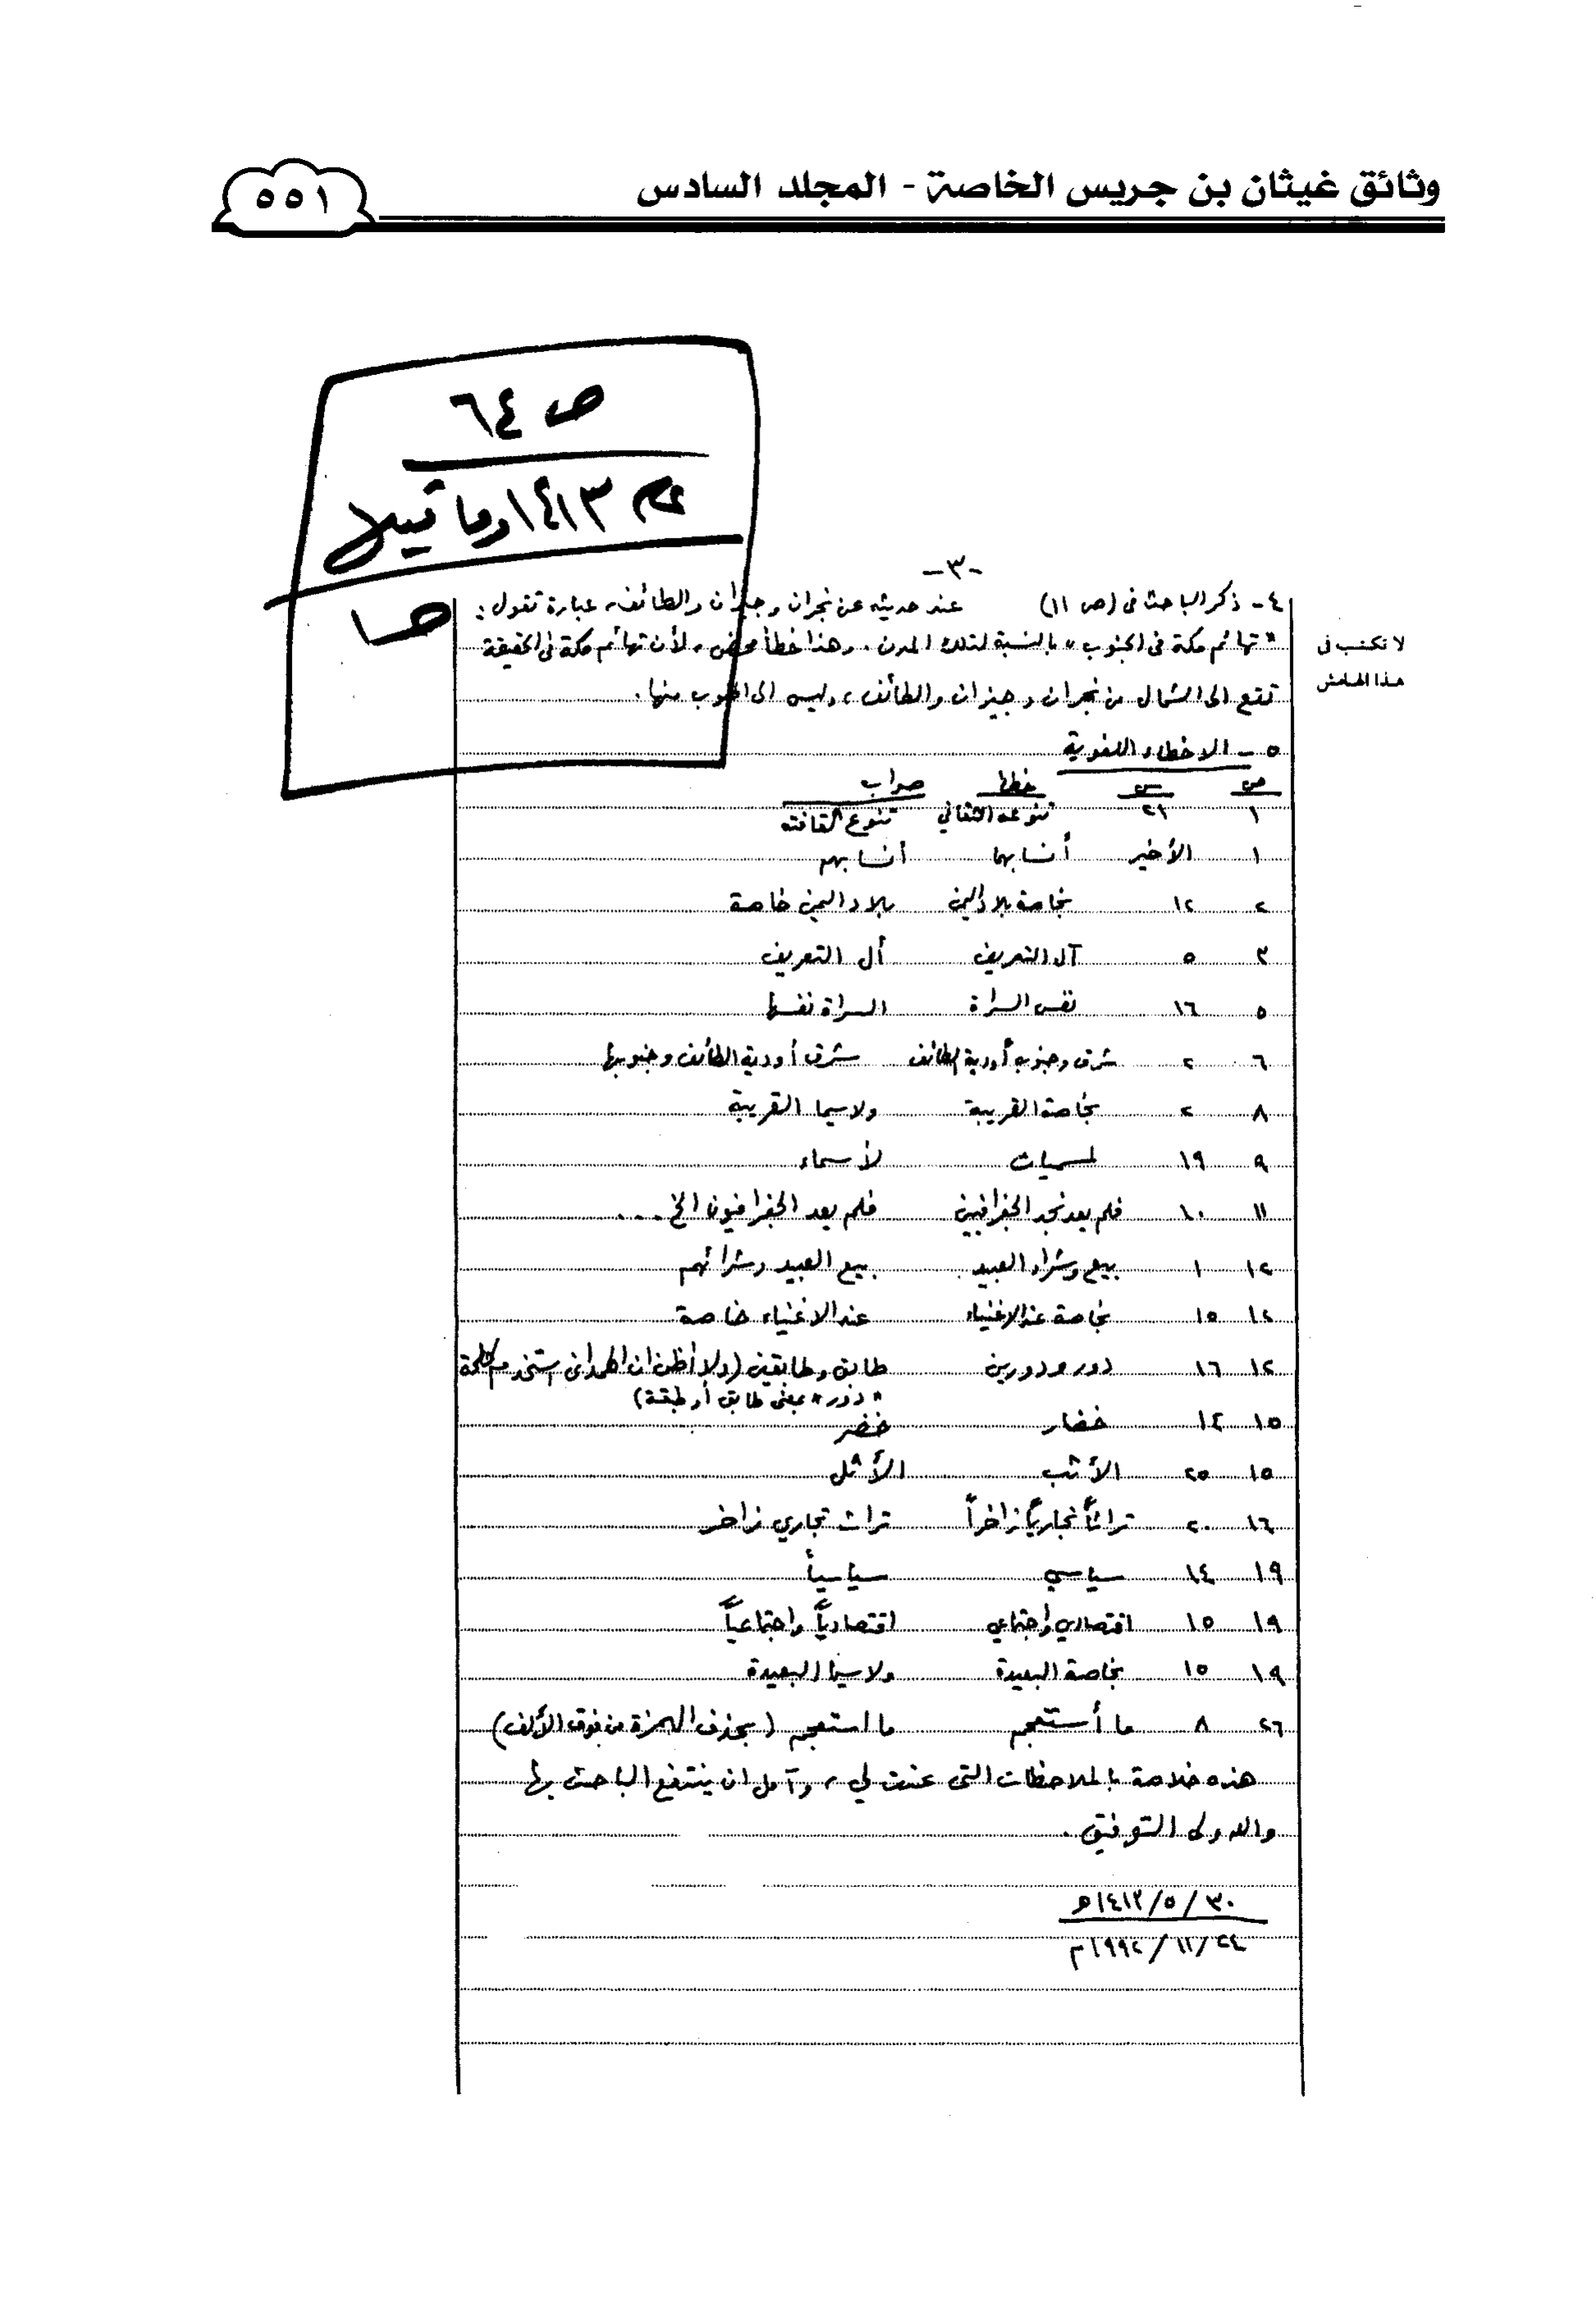 وثائق غيثان بن جريس الخاصة - المجلد السادس
٥٥١
ص ٦٤
١٤١٣ وما قبيلها
ص ١
-٣-
٤- ذكر الباحث في (ص ١١) عند حديثه عن نجران وجيزان والطائف، عبارة تقول:
"تهائم مكة في الجنوب" بالنسبة لتلك المدن. وهذا خطأ محض، لأن تهائم مكة في الحقيقة
تقع الى الشمال من نجران وجيزان والطائف، وليس الى الجنوب منها.
لا تكتب في
هذا الهامش
٥- الاخطاء اللغوية
ص س خطأ صواب
١ ٢١ تنوعه الثقافي تنوع ثقافته
١ الأخير أنسابها أنسابهم
٢ ١٢ بخاصة بلاد اليمن بلاد اليمن خاصة
٣ ٥ آل التعريف أل التعريف
٥ ١٦ نفس السراة السراة نفسها
٦ ٢ شرق وجنوب أودية الطائف شرق أودية الطائف وجنوبها
٨ ٢ بخاصة القريبة ولاسيما القريبة
٩ ١٩ لمسميات لأسماء
١١ ١٠ فلم يعد نجد الجغرافيين فلم يعد الجغرافيون الخ ....
١٢ ١ بيع وشراء العبيد بيع العبيد وشرائهم
١٢ ١٥ بخاصة عند الاغنياء عند الاغنياء خاصة
١٢ ١٦ دور ودورين طابق وطابقين (ولا أظن ان الهمداني استخدم كلمة
"دور" بمعنى طابق أو طبقة)
١٥ ١٤ خضار خضر
١٥ ٢٥ الأثب الأثل
١٦ ٢٠ تراثاً تجارياً زاخراً تراث تجاري زاخر
١٩ ١٤ سياسي سياسياً
١٩ ١٥ اقتصادي واجتماعي اقتصادياً واجتماعياً
١٩ ١٥ بخاصة البعيدة ولاسيما البعيدة
٢٦ ٨ ما أستعجم ما استعجم (بحذف الهمزة من فوق الألف)
هذه خلاصة بالملاحظات التي عنت لي، وآمل ان ينتفع الباحث بها
والله ولي التوفيق.
٣٠/٥/١٤١٣هـ
٢٤/١١/١٩٩٢م